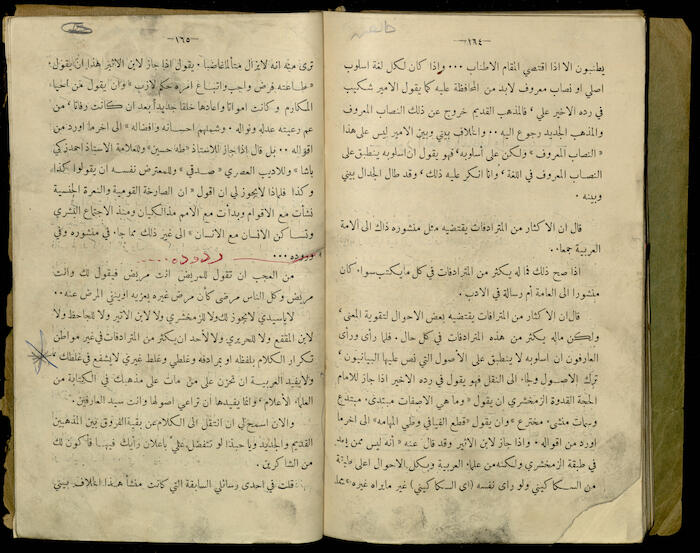 —١٦٤—
يطنبون الا اذا اقتضي المقام الاطناب ... واذا كان لكل لغة اسلوب
اصلي او نصاب معروف لابد من المحافظة عليه كما يقول الامير شكيب
في رده الاخير علي ، فالمذهب القديم خروج عن ذلك النصاب المعروف
والمذهب الجديد رجوع اليه .. والخلاف بيني وبين الامير ليس على هذا
«النصاب المعروف» ولكن على أسلوبه، فهو يقول ان اسلوبه ينطبق على
النصاب المعروف في اللغة ، وانا انكر عليه ذلك ، وقد طال الجدال بيني
وبينه .
قال ان الاكثار من المترادفات يقتضيه مثل منشوره ذاك الى الامة
العربية جمعاء .
اذا صح ذلك فما له يكثر من المترادفات في كل ما يكتب سواء كان
منشورا الى العامة أم رسالة في الادب .
قال ان الاكثار من المترادفات يقتضيه بعض الاحوال لتقوية المعنى ،
ولكن ماله يكثر من هذه المترادفات في كل حال . فلما رأى ورأى
العارفون ان اسلوبه لا ينطبق على الأصول التي نص عليها البيانيون ،
ترك الاصول ولجأ الى النقل فهو يقول في رده الاخير اذا جاز للامام
الحجة القدوة الزمخشري ان يقول «وما هي الاصفات مبتدىء مبتدع
وسمات منشىء مخترع» وان يقول «قطع الفيافي وطي المهامه» الى آخر ما
اورد من اقواله . واذا جاز لابن الاثير وقد قال عنه «أنه ليس ممن
في طبقة الزمخشري ولكنه من علماء العربية وبكل الاحوال اعلى طبقة
من السكاكيني ولو رأى نفسه (اى السكاكيني) غير مايراه غيره»
—١٦٥—
ترى منه انه لايزال متألما غاضبا . يقول اذا جاز لابن الاثير هذا ان يقول
«طاعته فرض واجب واتباع امره حكم لازب» وان يقول «من احياء
المكارم وكانت امواتا واعادها خلقا جديداً بعد ان كانت رفاتا ، من
عم رعيته عدله ونواله . وشملهم احسانه وافضاله» الى آخر ما اورد من
اقواله .. بل قال اذا جاز للاستاذ «طه حسين» وللعلامة الاستاذ احمد زكي
باشا «وللاديب العصري «صدقي» وللمعترض نفسه ان يقولوا كذا
وكذا فلماذا لايجوز لي ان اقول «ان الصارخة القومية والنعرة الجنسية
نشأت مع الاقوام وبدأت مع الامم مذ الكيان ومنذ الاجتماع البشري
وتساكن الانسان مع الانسان» الى غير ذلك مما جاء في منشوره وفي
ردوده ...
ردوده ....
من العجب ان تقول للمريض انت مريض فيقول لك وانت
مريض وكل الناس مرضى كأن مرض غيره يعزيه اوينفي المرض عنه ..
لا ياسيدي لايجوز لك ولا للزمخشري ولا لابن الاثير ولا للجاحظ ولا
لابن المقفع ولا للحريري ولا لأحد ان يكثر من المترادفات في غير مواطن
تكرار الكلام بلفظه او بمرادفه وغلطي وغلط غيري لايشفع في غلطك
ولايفيد العربية ان تحزن على من مات على مذهبك في الكتابة من
العلماء الأعلام ، وانما يفيدها ان تراعي اصولها وانت سيد العارفين .
والان اسمح لي ان انتقل الى الكلام عن بقية الفروق بين المذهبين
القديم والجديد ويا حبذا لو تتفضل علي باعلان رأيك فيها فأكون لك
من الشاكرين .
قلت في احدى رسائلي السابقة التي كانت منشأ هذا الخلاف بيني